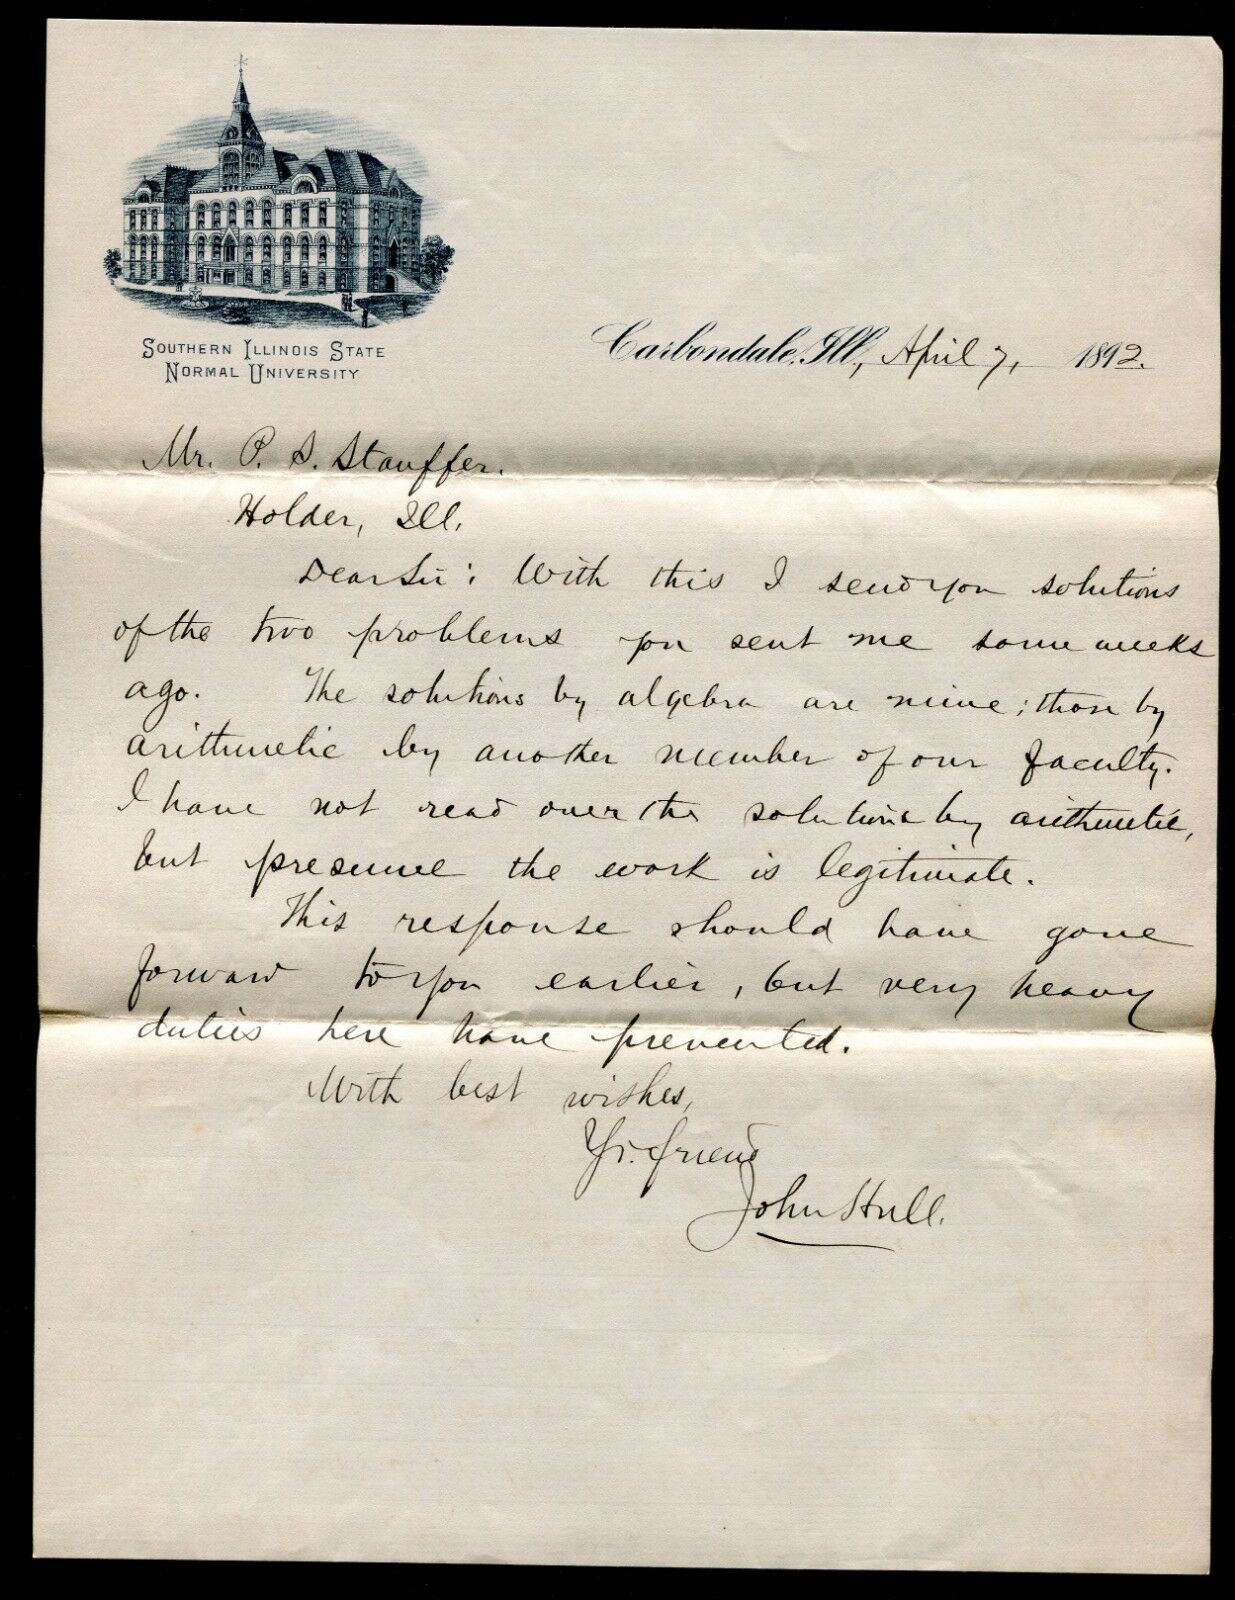 SOUTHERN ILLINOIS STATE
NORMAL UNIVERSITY
Carbondale, Ill., April 7, 1892.
Mr. P. S. Stauffer.
Holder, Ill.
Dear Sir: With this I send you solutions
of the two problems you sent me some weeks
ago. The solutions by algebra are mine; those by
arithmetic by another member of our faculty.
I have not read over the solutions by arithmetic,
but presume the work is legitimate.
This response should have gone
forward to you earlier, but very heavy
duties here have prevented.
With best wishes,
Yr. friend
John Hull.